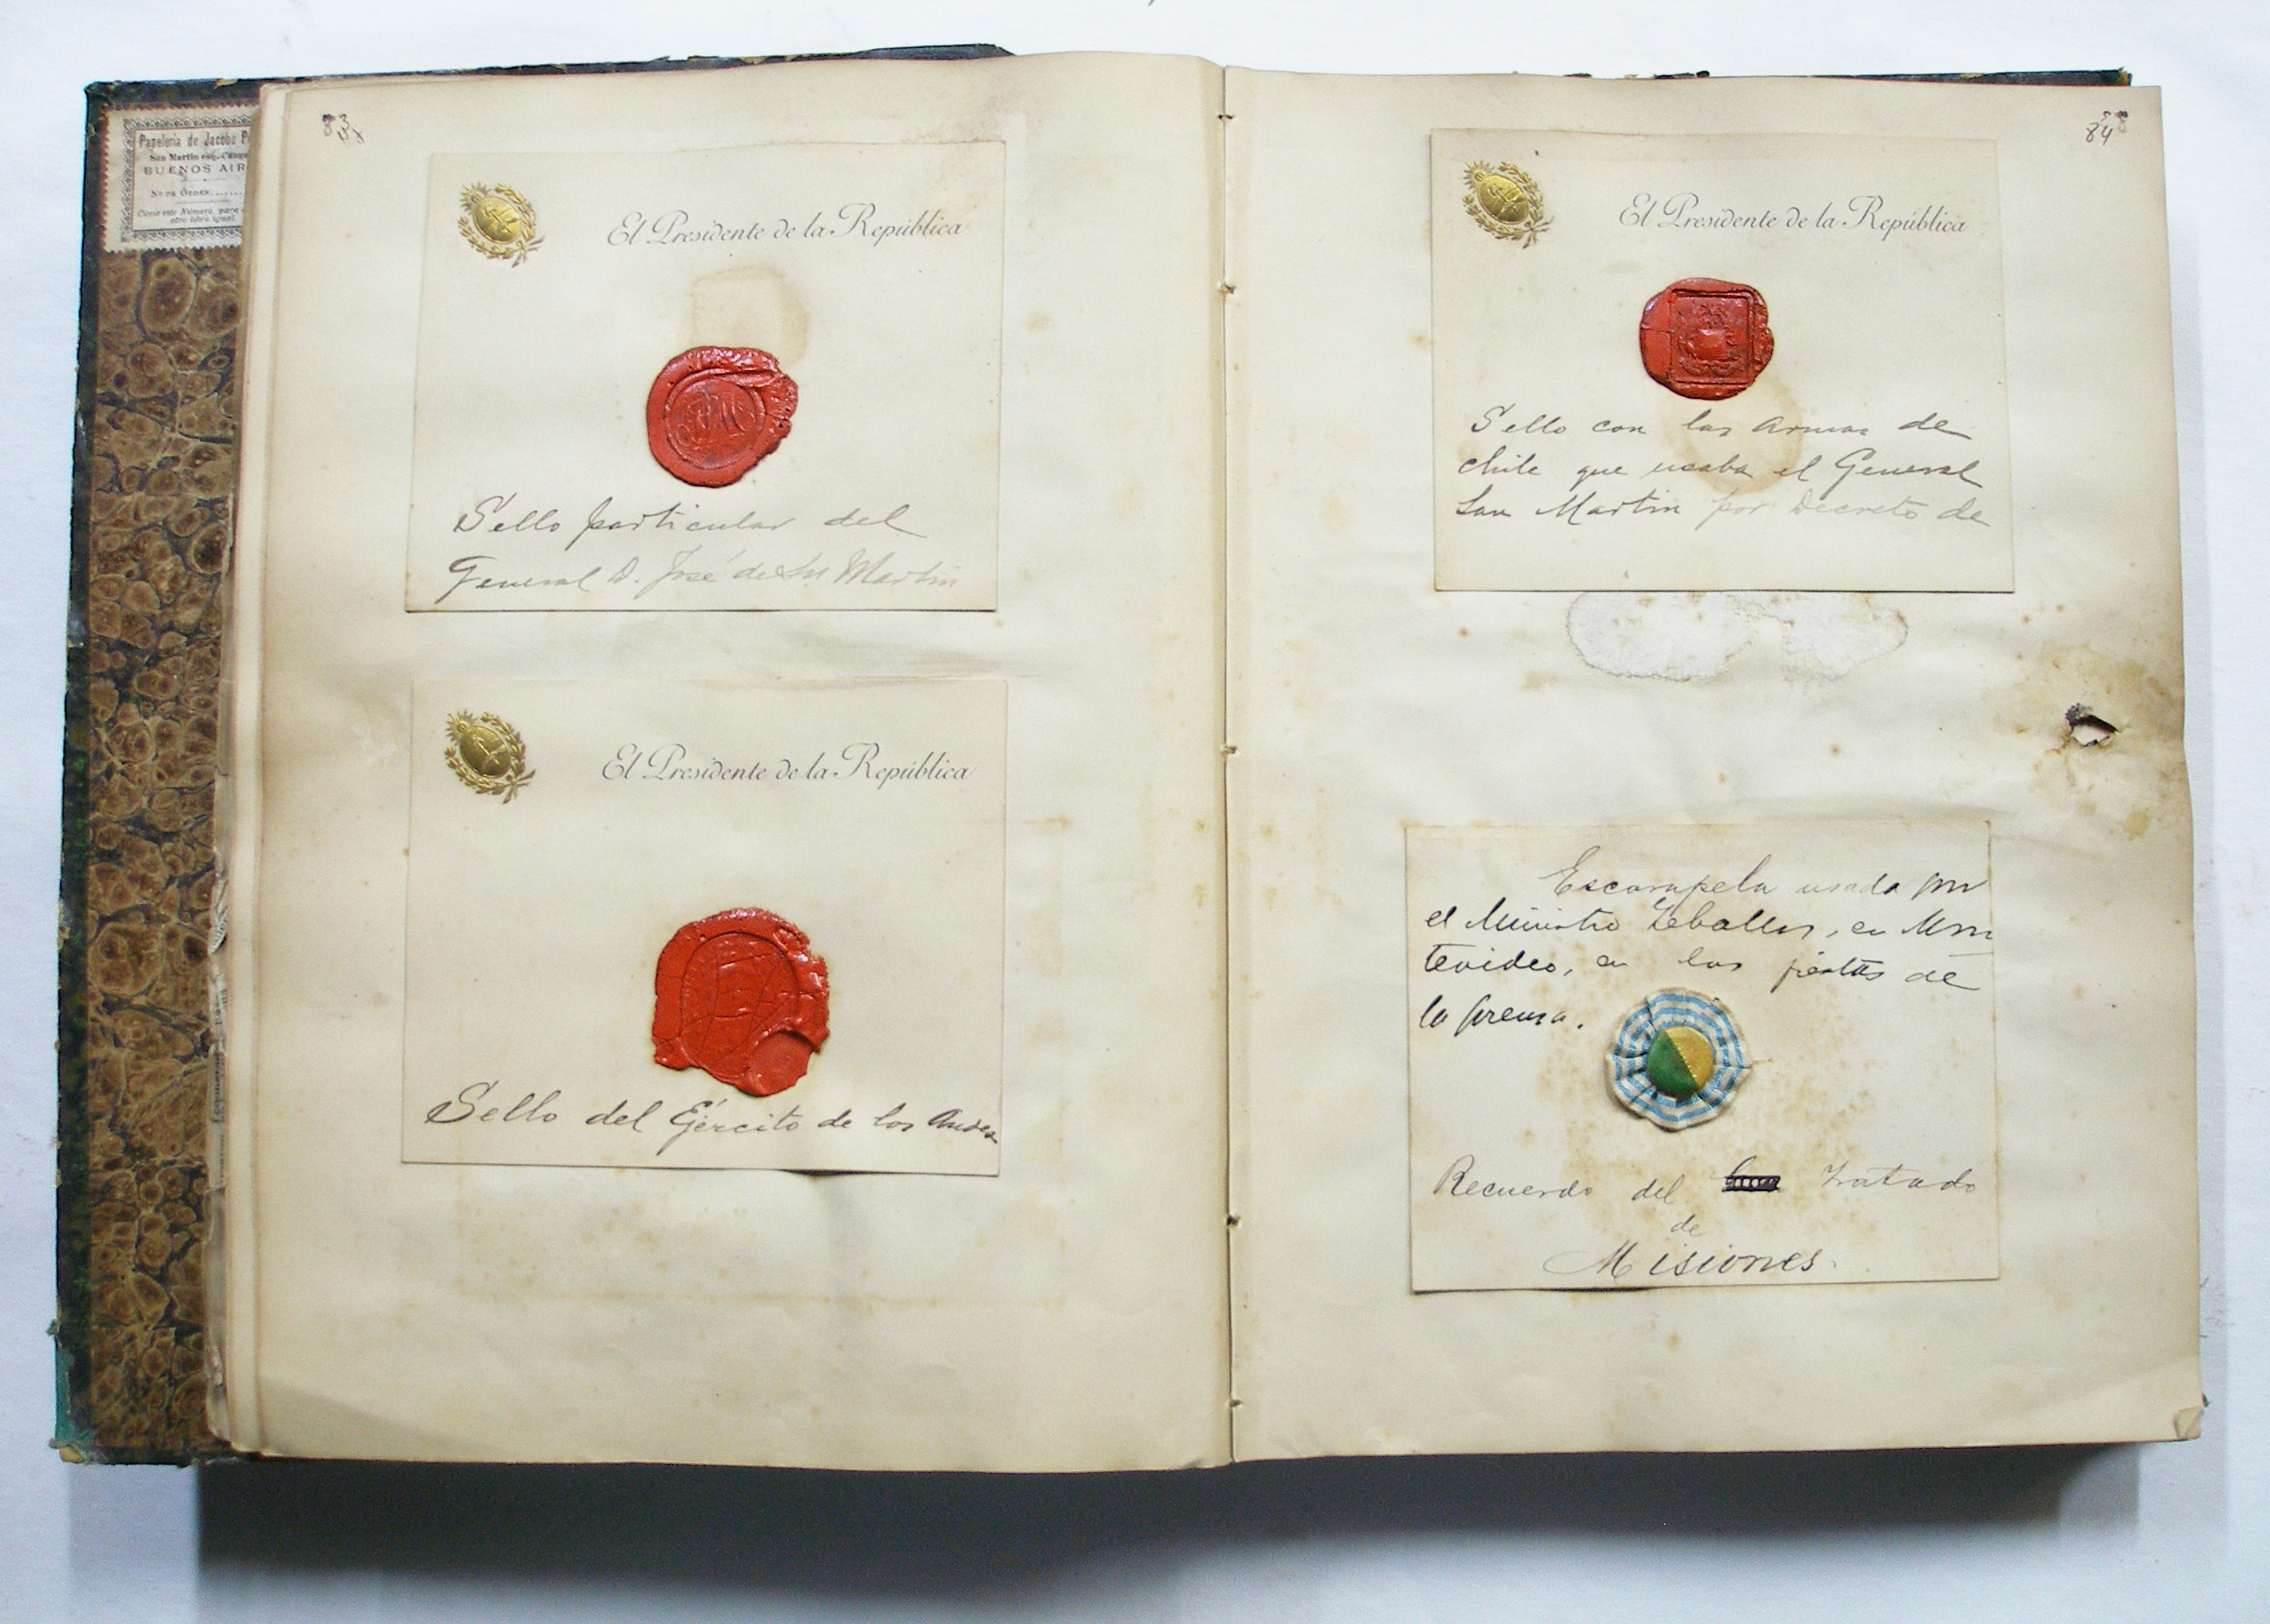 83
Papelería de Jacobo
San Martín esq. Cang
BUENOS AIR
No de Orden
Cítese este Número, para
otro libro igual.
El Presidente de la República
Sello particular del
General D. José de Sn Martin
El Presidente de la República
Sello del Ejército de los Andes
84
El Presidente de la República
Sello con las armas de
Chile que usaba el General
San Martin por Decreto de
Escarapela usada por
el Ministro Zeballos, en Mon
tevideo, en las fiestas de
la prensa.
Recuerdo del Tratado
de
Misiones.